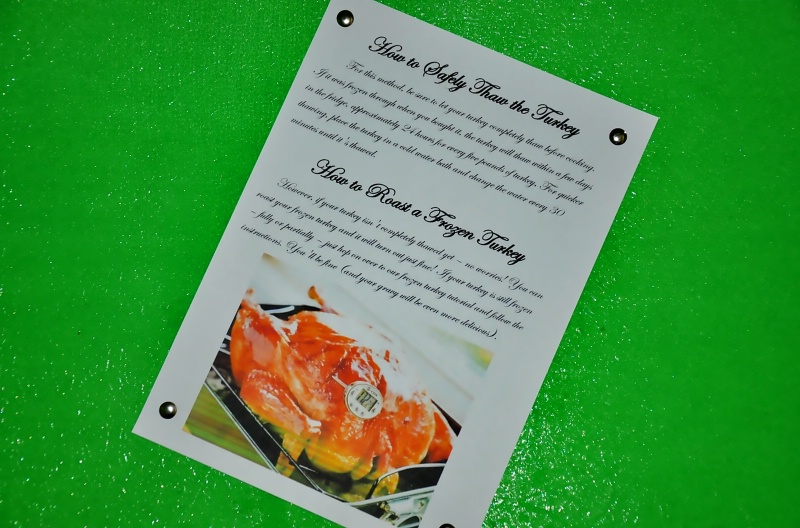 How to Safely Thaw the Turkey
For this method, be sure to let your turkey completely thaw before cooking.
If it was frozen through when you bought it, the turkey will thaw within a few days
in the fridge, approximately 24 hours for every five pounds of turkey. For quicker
thawing, place the turkey in a cold water bath and change the water every 30
minutes until it's thawed.
How to Roast a Frozen Turkey
However, if your turkey isn't completely thawed yet – no worries! You can
roast your frozen turkey and it will turn out just fine! If your turkey is still frozen
– fully or partially – just hop on over to our frozen turkey tutorial and follow the
instructions. You'll be fine (and your gravy will be even more delicious).